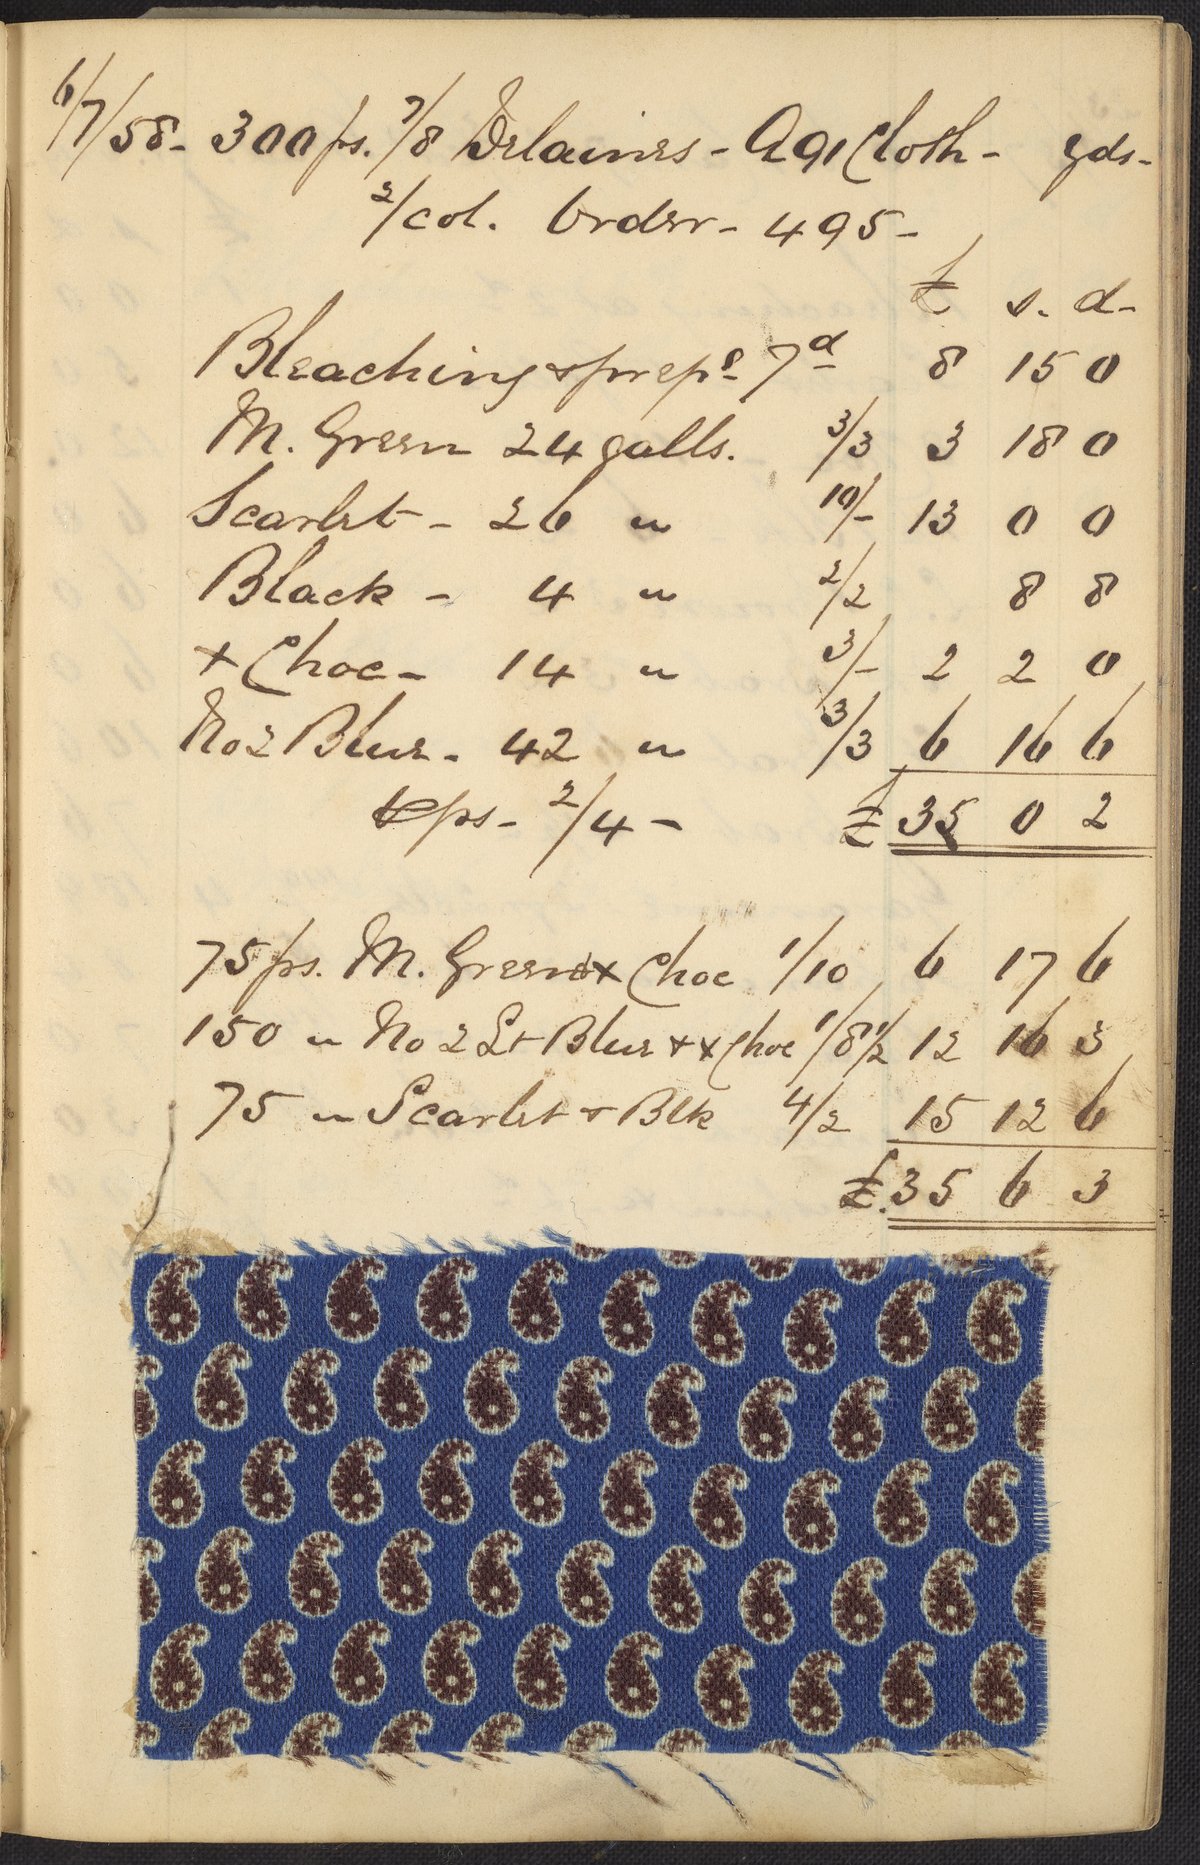 6/7/58 - 300 ps. 7/8 Delaines - A 91 Cloth - yds -
2/col. Order - 495 -
£ s. d -
Bleaching & prepg 7d 8 15 0
M. Green 24 galls. 3/3 3 18 0
Scarlet - 26 " 10/- 13 0 0
Black - 4 " 2/2 8 8
x Choc - 14 " 3/- 2 2 0
No 2 Blue - 42 " 3/3 6 16 6
ps - 2/4 - £ 35 0 2
75 ps. M. Green & x Choc 1/10 6 17 6
150 " No 2 Lt Blue & x Choc 1/8 1/2 12 16 3
75 " Scarlet & Blk 4/2 15 12 6
£. 35 6 3